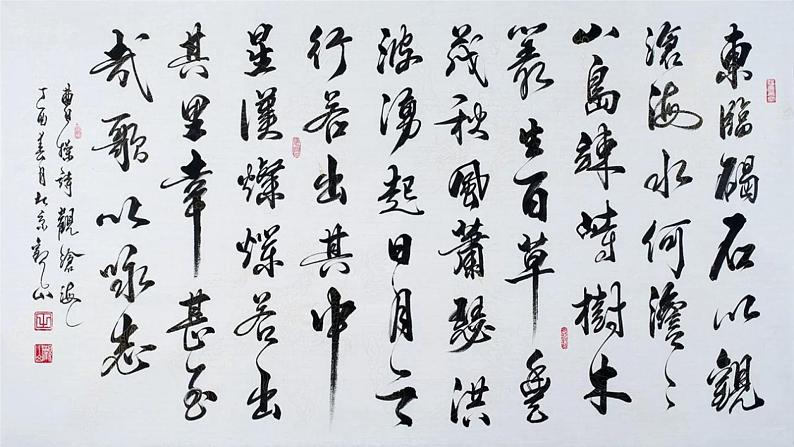 東臨碣石以觀
滄海水何澹〻
山島竦峙樹木
叢生百草豐
茂秋風蕭瑟洪
波湧起日月之
行若出其中
星漢燦爛若出
其里幸甚至
哉歌以咏志
曹操詩觀滄海
丁酉美月北京